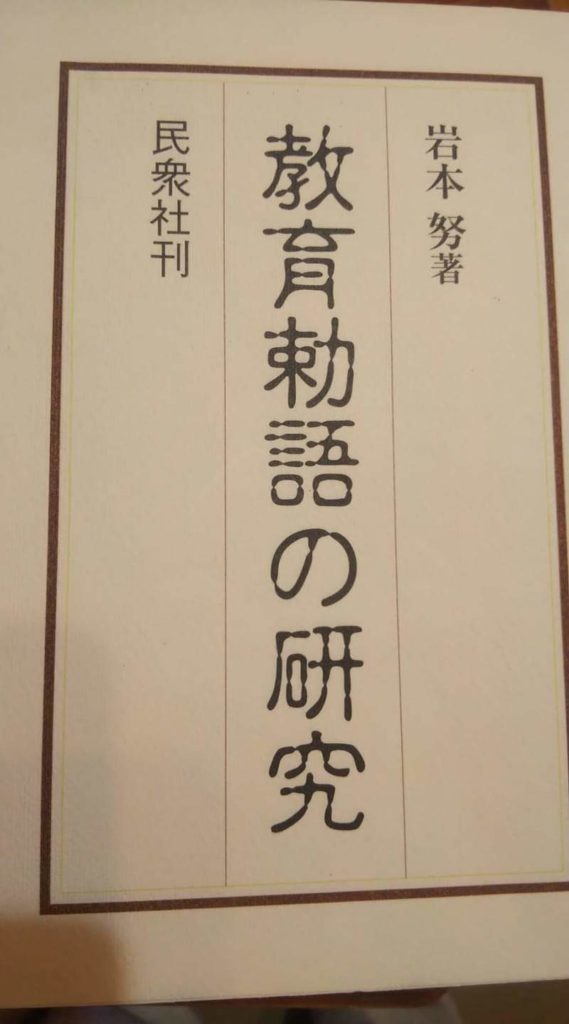 岩本 努著
教育勅語の研究
民衆社刊